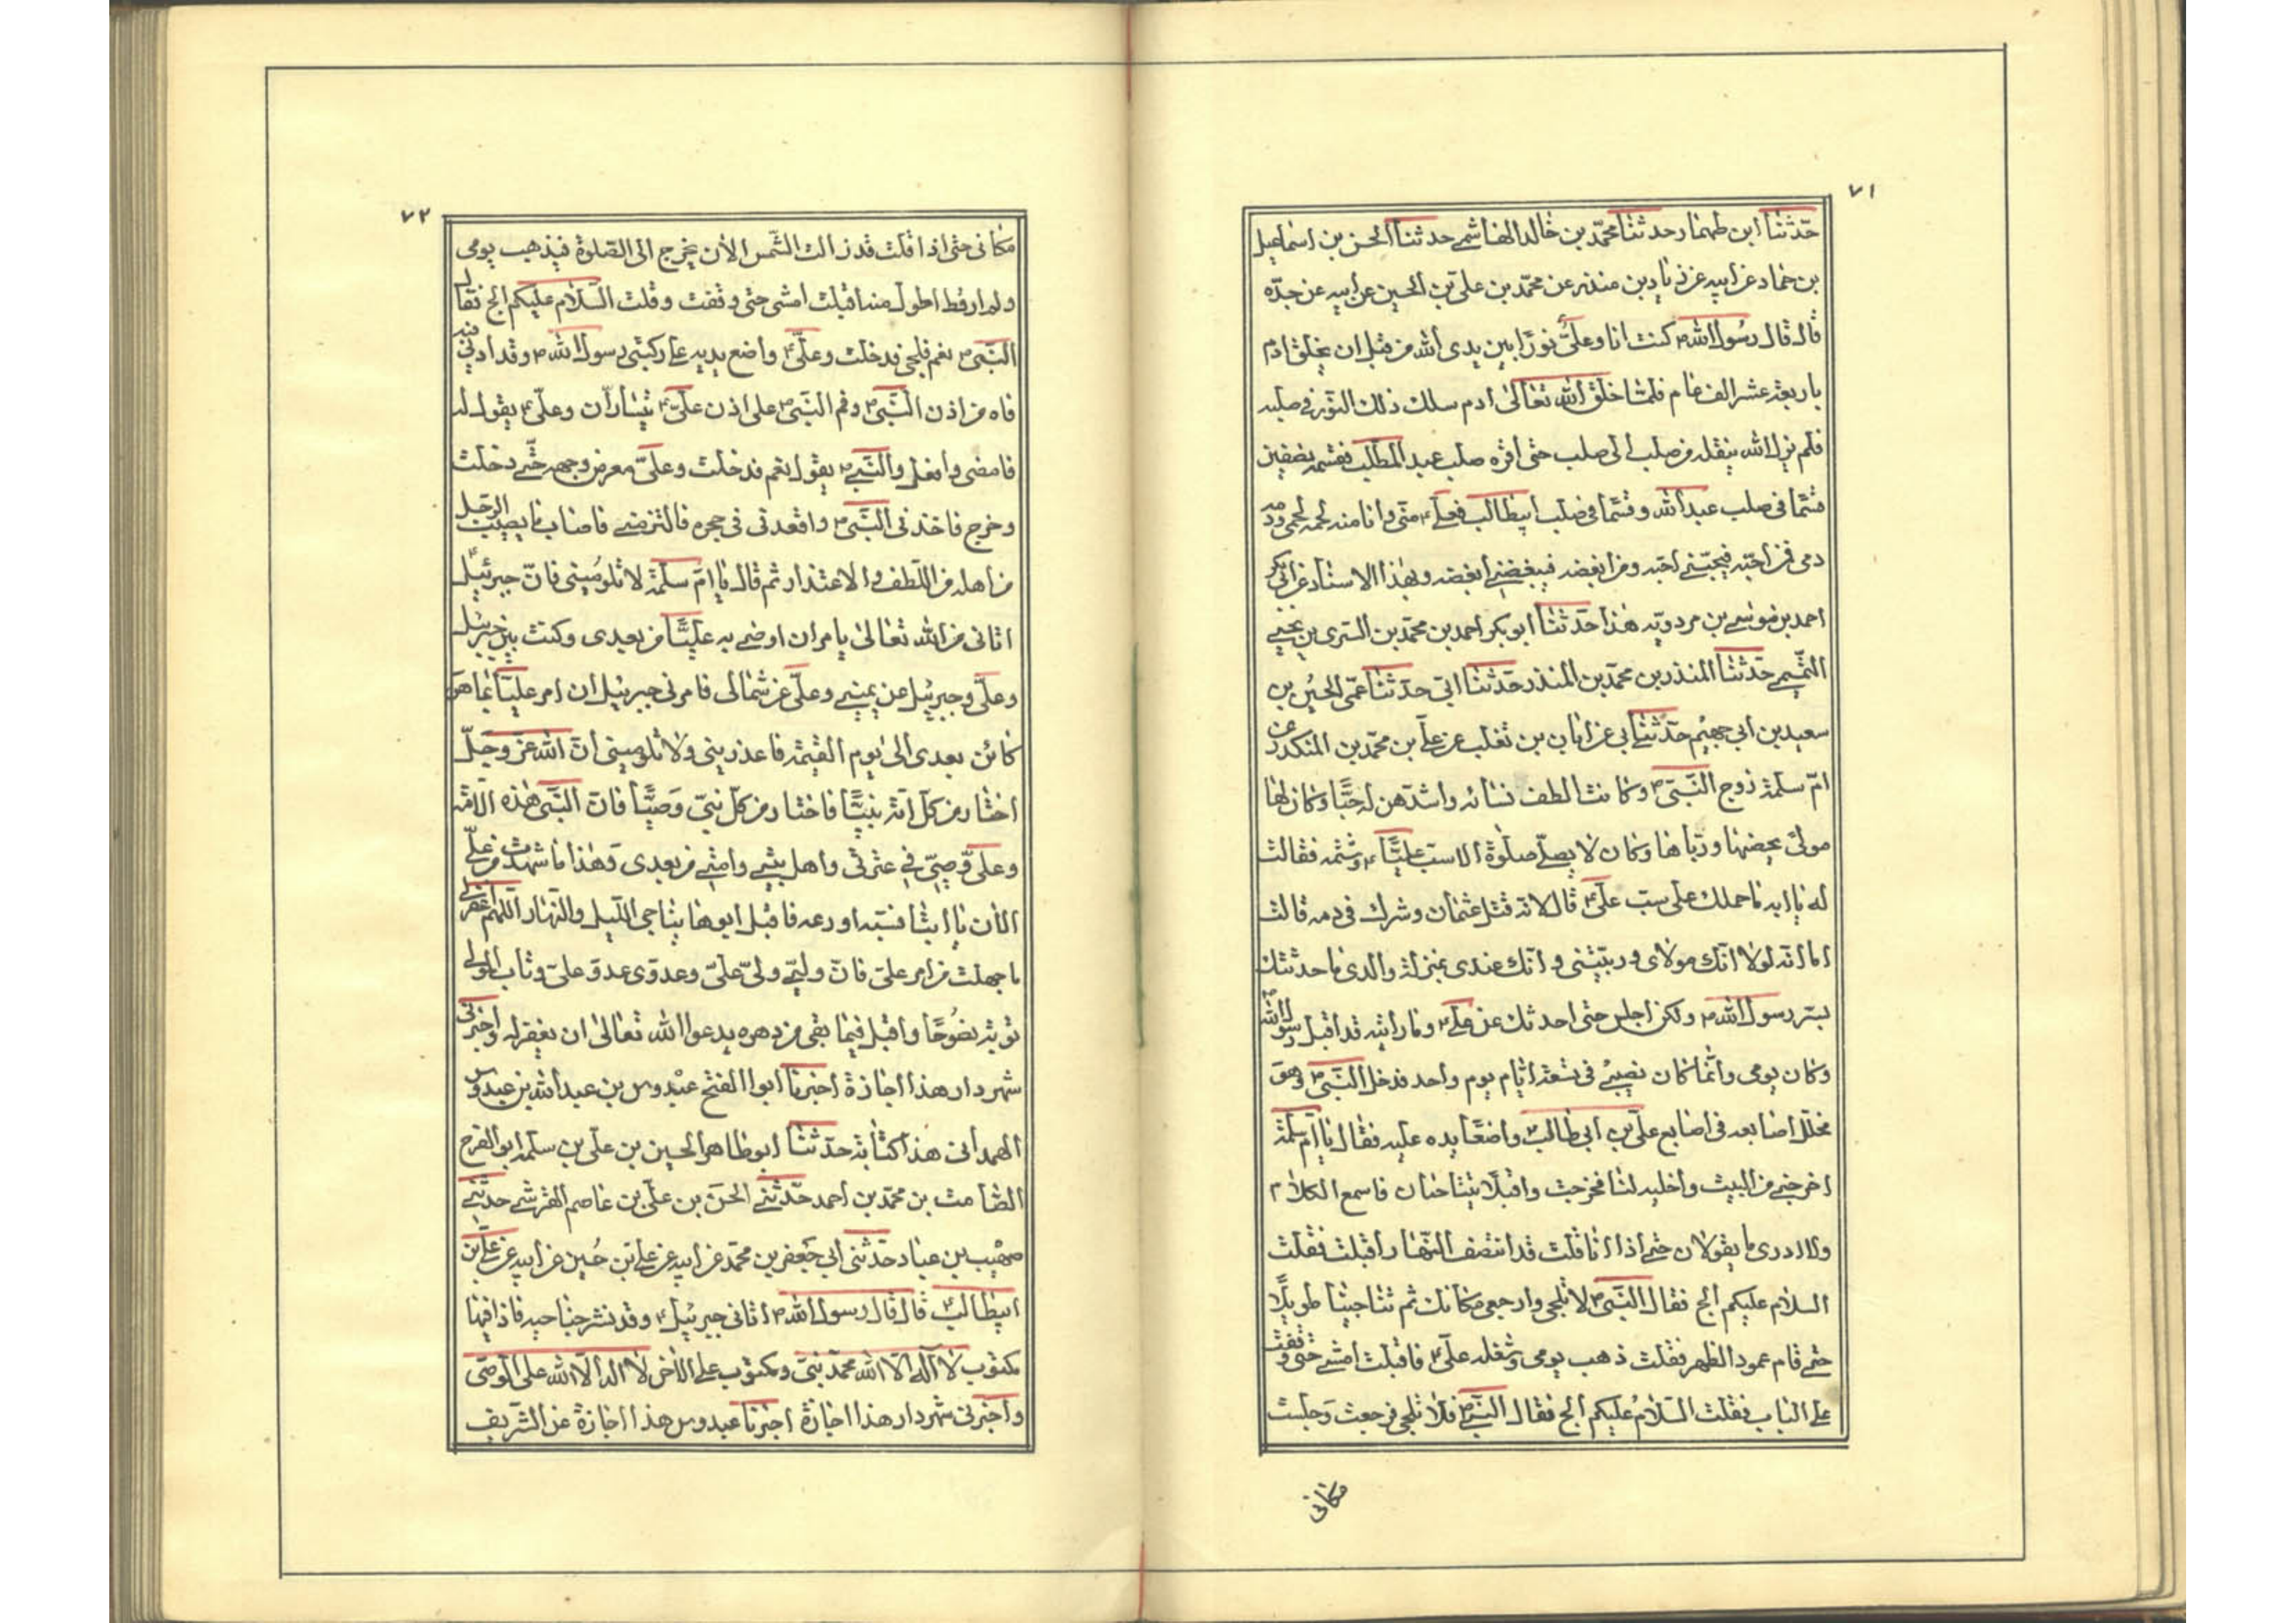 ٧١
حدّثنا ابن طهمار حدثنا محمّد بن خالد الهاشمي حدثنا الحسن بن اسماعيل
بن حماد عن ابيه عن زياد بن منذر عن محمّد بن علي بن الحسين عن ابيه عن جدّه
قال قال رسول الله ص كنت انا وعليّ نورًا بين يدى الله من قبل ان يخلق ادم
باربعة عشر الف عام فلمّا خلق الله تعالى ادم سلك ذلك النور في صلبه
فلم يزل الله ينقله من صلب الى صلب حتى اقرّه صلب عبد المطلب فقسمه نصفين
قسمًا في صلب عبد الله وقسمًا في صلب ابيطالب فعلي ع منّى وانا منه لحمه لحمى ودمه
دمى فمن احبّه فبحبّي احبّه ومن ابغضه فببغضي ابغضه وبهذا الاسناد عن ابي بكر
احمد بن موسى بن مردويه هذا حدّثنا ابو بكر احمد بن محمّد بن السرى بن يحيى
التميمي حدّثنا المنذر بن محمّد بن المنذر حدّثنا ابى حدّثنا عمّى الحسين بن
سعيد بن ابي جهيم حدّثني ابي عن ابان بن تغلب عن علي بن محمّد بن المنكدر عن
امّ سلمة زوج النّبيّ ص وكانت الطف نسائه واشدّهن له حبًّا وكان لها
مولىً يحضنها وربّاها وكان لا يصلّي صلوة الا سبّ عليًّا ع وشتمه فقالت
له يا ابه ما حملك على سبّ عليّ ع قال لانّه قتل عثمان وشرك في دمه قالت
اما انه لولا انّك مولاى وربّيتنى وانّك عندى بمنزلة والدى ما حدثتك
بسرّ رسول الله ص ولكن اجلس حتى احدثك عن علي ع وما رايته قد اقبل رسول الله ص
وكان يومى وانّما كان نصيبي في تسعة ايّام يوم واحد فدخل النّبي ص وهو
مخلّل اصابعه في اصابع علي بن ابي طالب ع واضعًا يده عليه فقال يا امّ سلمة
اخرجي من البيت واخليه لنا فخرجت واقبلا يتناجيان فاسمع الكلام
ولا ادرى ما يقولان حتى اذا انا قلت قد انتصف النّهار اقبلت فقلت
السلام عليكم الج فقال النّبي ص لا تلجى وارجعى مكانك ثم تناجيا طويلاً
حتى قام عمود الظهر فقلت ذهب يومى وشغله علي ع فاقبلت امشي حتى وقفت
على الباب فقلت السّلام عليكم الج فقال النّبي ص فلا تلجى فرجعت وجلست
مكانى
٧٢
مكانى حتى اذا قلت قد زالت الشّمس الان يخرج الى الصّلوة فيذهب يومى
ولم ار قط اطول منه اقبلت امشى حتى وقفت وقلت السّلام عليكم الج فقال
النّبي ص نعم فلجى فدخلت وعليّ ع واضع يديه على ركبتى رسول الله ص وقد ادنى
فاه من اذن النّبي ص وفم النّبي ص على اذن عليّ ع يتسارّان وعليّ ع يقول له
فامضى وافعل والنّبي ص يقول نعم فدخلت وعليّ معرض وجهه حتّى دخلت
وخرج فاخذنى النّبي ص واقعدنى في حجره فالتزمنى فاصاب ما يصيب الرّجل
من اهله من اللّطف والاعتذار ثم قال يا امّ سلمة لا تلومينى فانّ جبرئيل
اتانى من الله تعالى يامر ان اوصى به عليًّا من بعدى وكنت بين جبرئيل
وعليّ وجبرئيل عن يمينى وعليّ عن شمالى فامرنى جبرئيل ان امر عليًّا بما هو
كائن بعدى الى يوم القيمة فاعذرينى ولا تلومينى انّ الله عزّ وجلّ
اختار من كل امّة نبيًّا فاختار من كل نبيّ وصيًّا فانا النّبي هذه الامّة
وعليّ وصيّى في عترتى واهل بيتى وامّتى من بعدى وهذا ما شهدت من عليّ
الان يا ابتا فسبّه اودعه فاقبل ابوها يناجى اللّيل والنّهار اللّهم اغفر لي
ما جهلت من امر عليّ فانّ وليّى وليّ عليّ وعدوى عدوّ عليّ وتاب المولى
توبة نصوحًا واقبل فيما بقى من دهره يدعو الله تعالى ان يغفر له واخبرنى
شهردار هذا اجازة اخبرنا ابو الفتح عبدوس بن عبد الله بن عبدوس
الهمدانى هذا كتابة حدّثنا ابو طاهر الحسين بن على بن سلمة ابو الفرج
الصّامت بن محمّد بن احمد حدّثني الحسن بن علي بن عاصم القرشي حدّثني
صهيب بن عباد حدّثنى ابي جعفر بن محمّد عن ابيه عن علي بن حسين عن ابيه عن علي بن
ابيطالب ع قال قال رسول الله ص اتانى جبرئيل ع وقد نشر جناحيه فاذا فيها
مكتوب لا اله الا الله محمّد نبيّ ومكتوب على الاخر لا اله الا الله على الوصىّ
واخبرنى شهردار هذا اجازة اخبرنا عبدوس هذا اجازة عن الشّريف